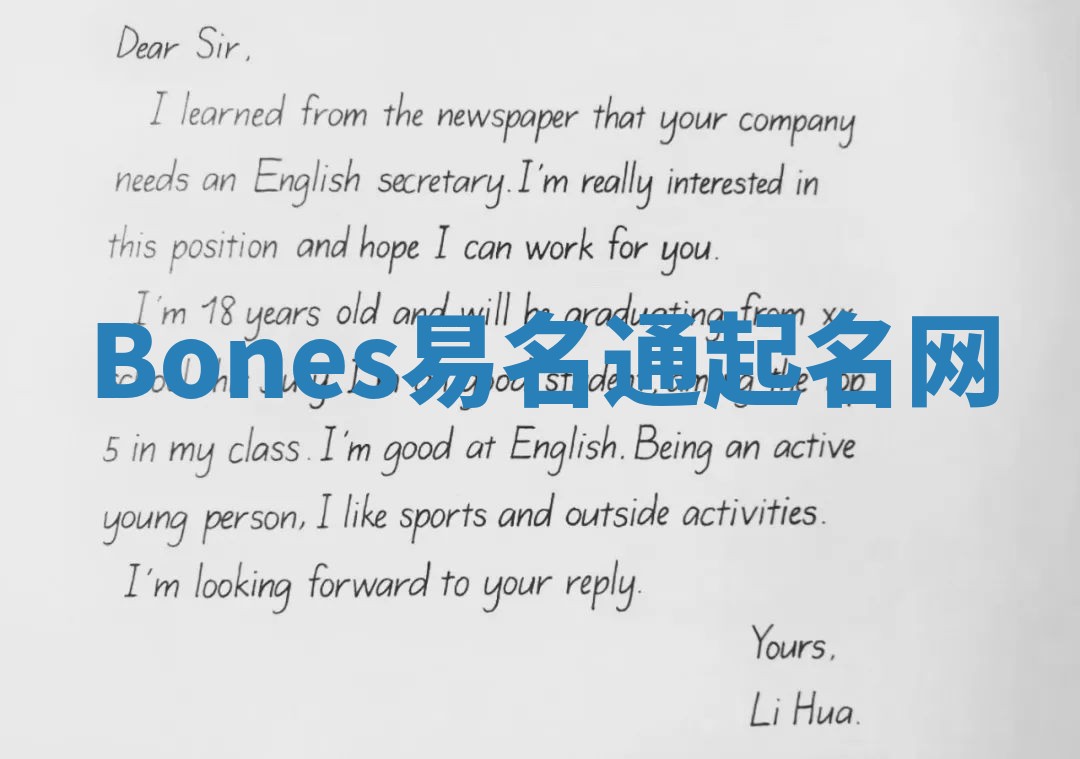 Dear Sir,
I learned from the newspaper that your company
needs an English secretary. I'm really interested in
this position and hope I can work for you.
I'm 18 years old and will be graduating from xx
Bones易名通起名网
the top
5 in my class. I'm good at English. Being an active
young person, I like sports and outside activities.
I'm looking forward to your reply.
Yours,
Li Hua.